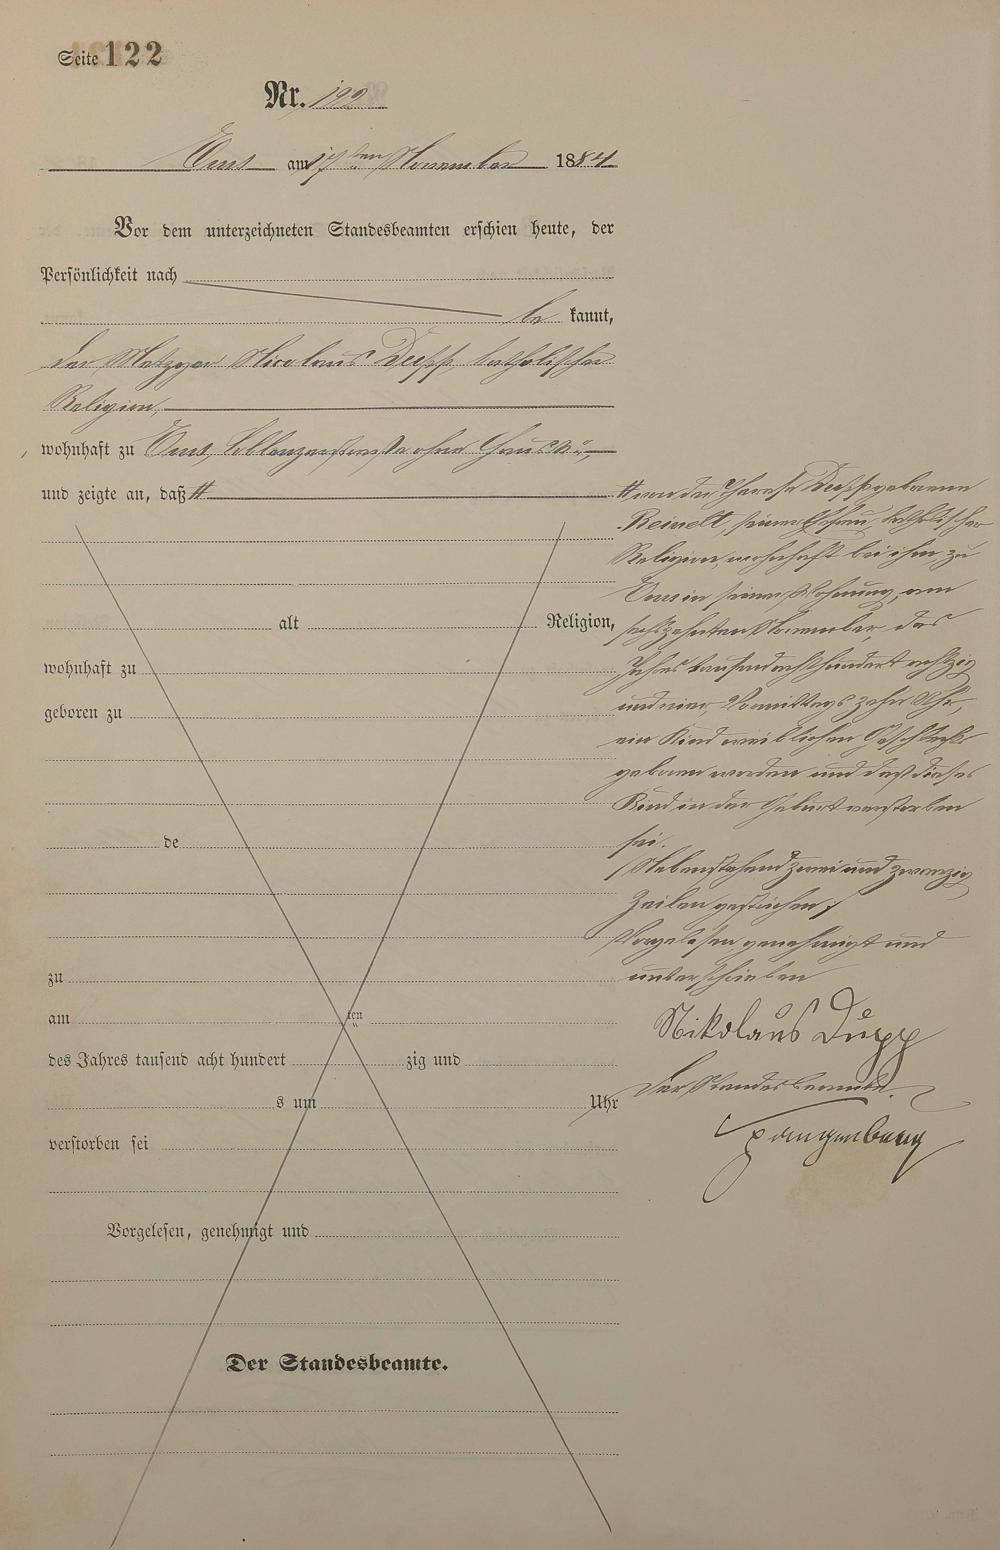 Seite 122
Nr. 122
Ems am 17ten November 1884
Vor dem unterzeichneten Standesbeamten erschien heute, der
Persönlichkeit nach
be kannt,
der Metzger Nicolaus Dupp, katholischer
Religion,
wohnhaft zu Ems, Coblenzerstraße ohne Haus No.
und zeigte an, daß #
alt Religion,
wohnhaft zu
geboren zu
de
zu
am ten
des Jahres tausend acht hundert zig und
s um Uhr
verstorben sei
Vorgelesen, genehmigt und
Der Standesbeamte.
# von der Therese Dupp geborene
Reindt, seiner Ehefrau, katholischer
Religion, wohnhaft bei ihm zu
Ems in seiner Wohnung, am
sechszehnten November des
Jahres tausend acht hundert achtzig
und vier, Vormittags zehn Uhr,
ein Kind weiblichen Geschlechts
geboren worden und daß dieses
Kind in der Geburt verstorben
sei.
Nebenstehend zwei und zwanzig
Zeilen gestrichen;
Vorgelesen, genehmigt und
unterschrieben
Nikolaus Dupp
Der Standesbeamte.
Spangenberg